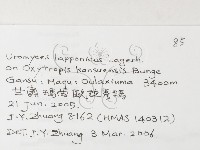 85
Uromyces lapponicus Lagerh.
on Oxytropis kansuensis Bunge
Gansu: Maqu: Oulaxiuma 3400m
甘肃 玛曲 欧拉秀玛
21 Jun. 2005
J.-Y. Zhuang 3162 (HMAS 140312)
Det. J.-Y. Zhuang 3 Mar. 2006